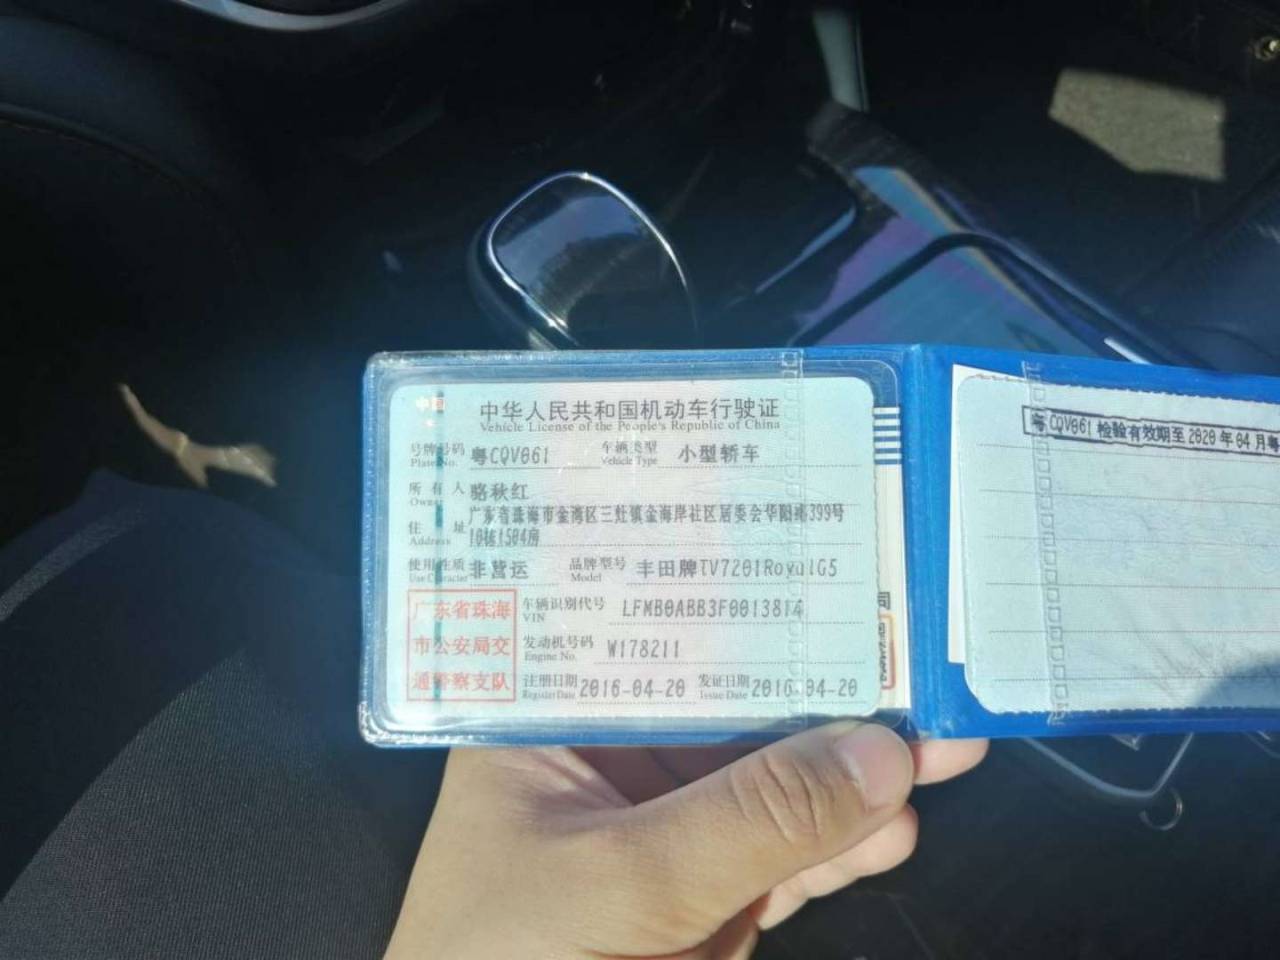 中国
中华人民共和国机动车行驶证
Vehicle License of the People's Republic of China
号牌号码 粤CQV061 车辆类型 小型轿车
Plate No. Vehicle Type
所有人 骆秋红
Owner
住址 广东省珠海市金湾区三灶镇金海岸社区居委会华阳路399号
Address 10栋1504房
使用性质 非营运 品牌型号 丰田牌TV7201RoyalG5
Use Character Model
广东省珠海 车辆识别代号 LFMB0ABB3F0013814
VIN
市公安局交 发动机号码 W178211
Engine No.
通警察支队 注册日期 2016-04-20 发证日期 2016-04-20
Register Date Issue Date
司
粤CQV061 检验有效期至 2020 年 04 月 粤